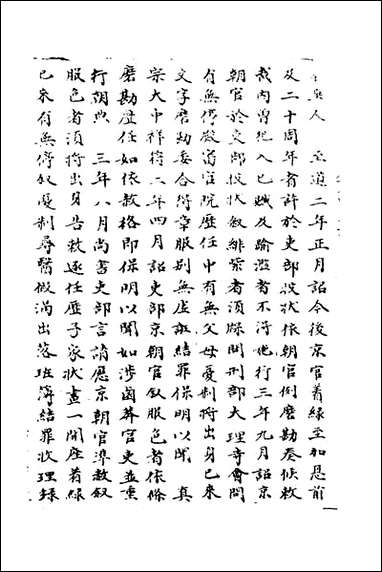 人　至道二年正月詔今後京官着緑至加恩前
及二十周年者許於吏部投狀依朝官例磨勘奏候敕
裁內曾犯入己贓及踰濫者不得施行三年九月詔京
朝官於吏部投狀敘緋紫者須牒問刑部大理寺會問
有無停殿審官院歷任中有無父母憂制將出身已來
文字磨勘委合得章服別無虛誑結罪保明以聞　真
宗大中祥符二年四月詔吏部京朝官敘服色者依條
磨勘歷任如依敕格即保明以聞如涉鹵莽官吏並重
行朝典　三年八月尚書吏部言請應京朝官準敕敘
服色者須將出身告敕逐任歷子家狀盡一開座着緑
已來有無停敘憂制尋醫假滿出落班簿結罪收理錄